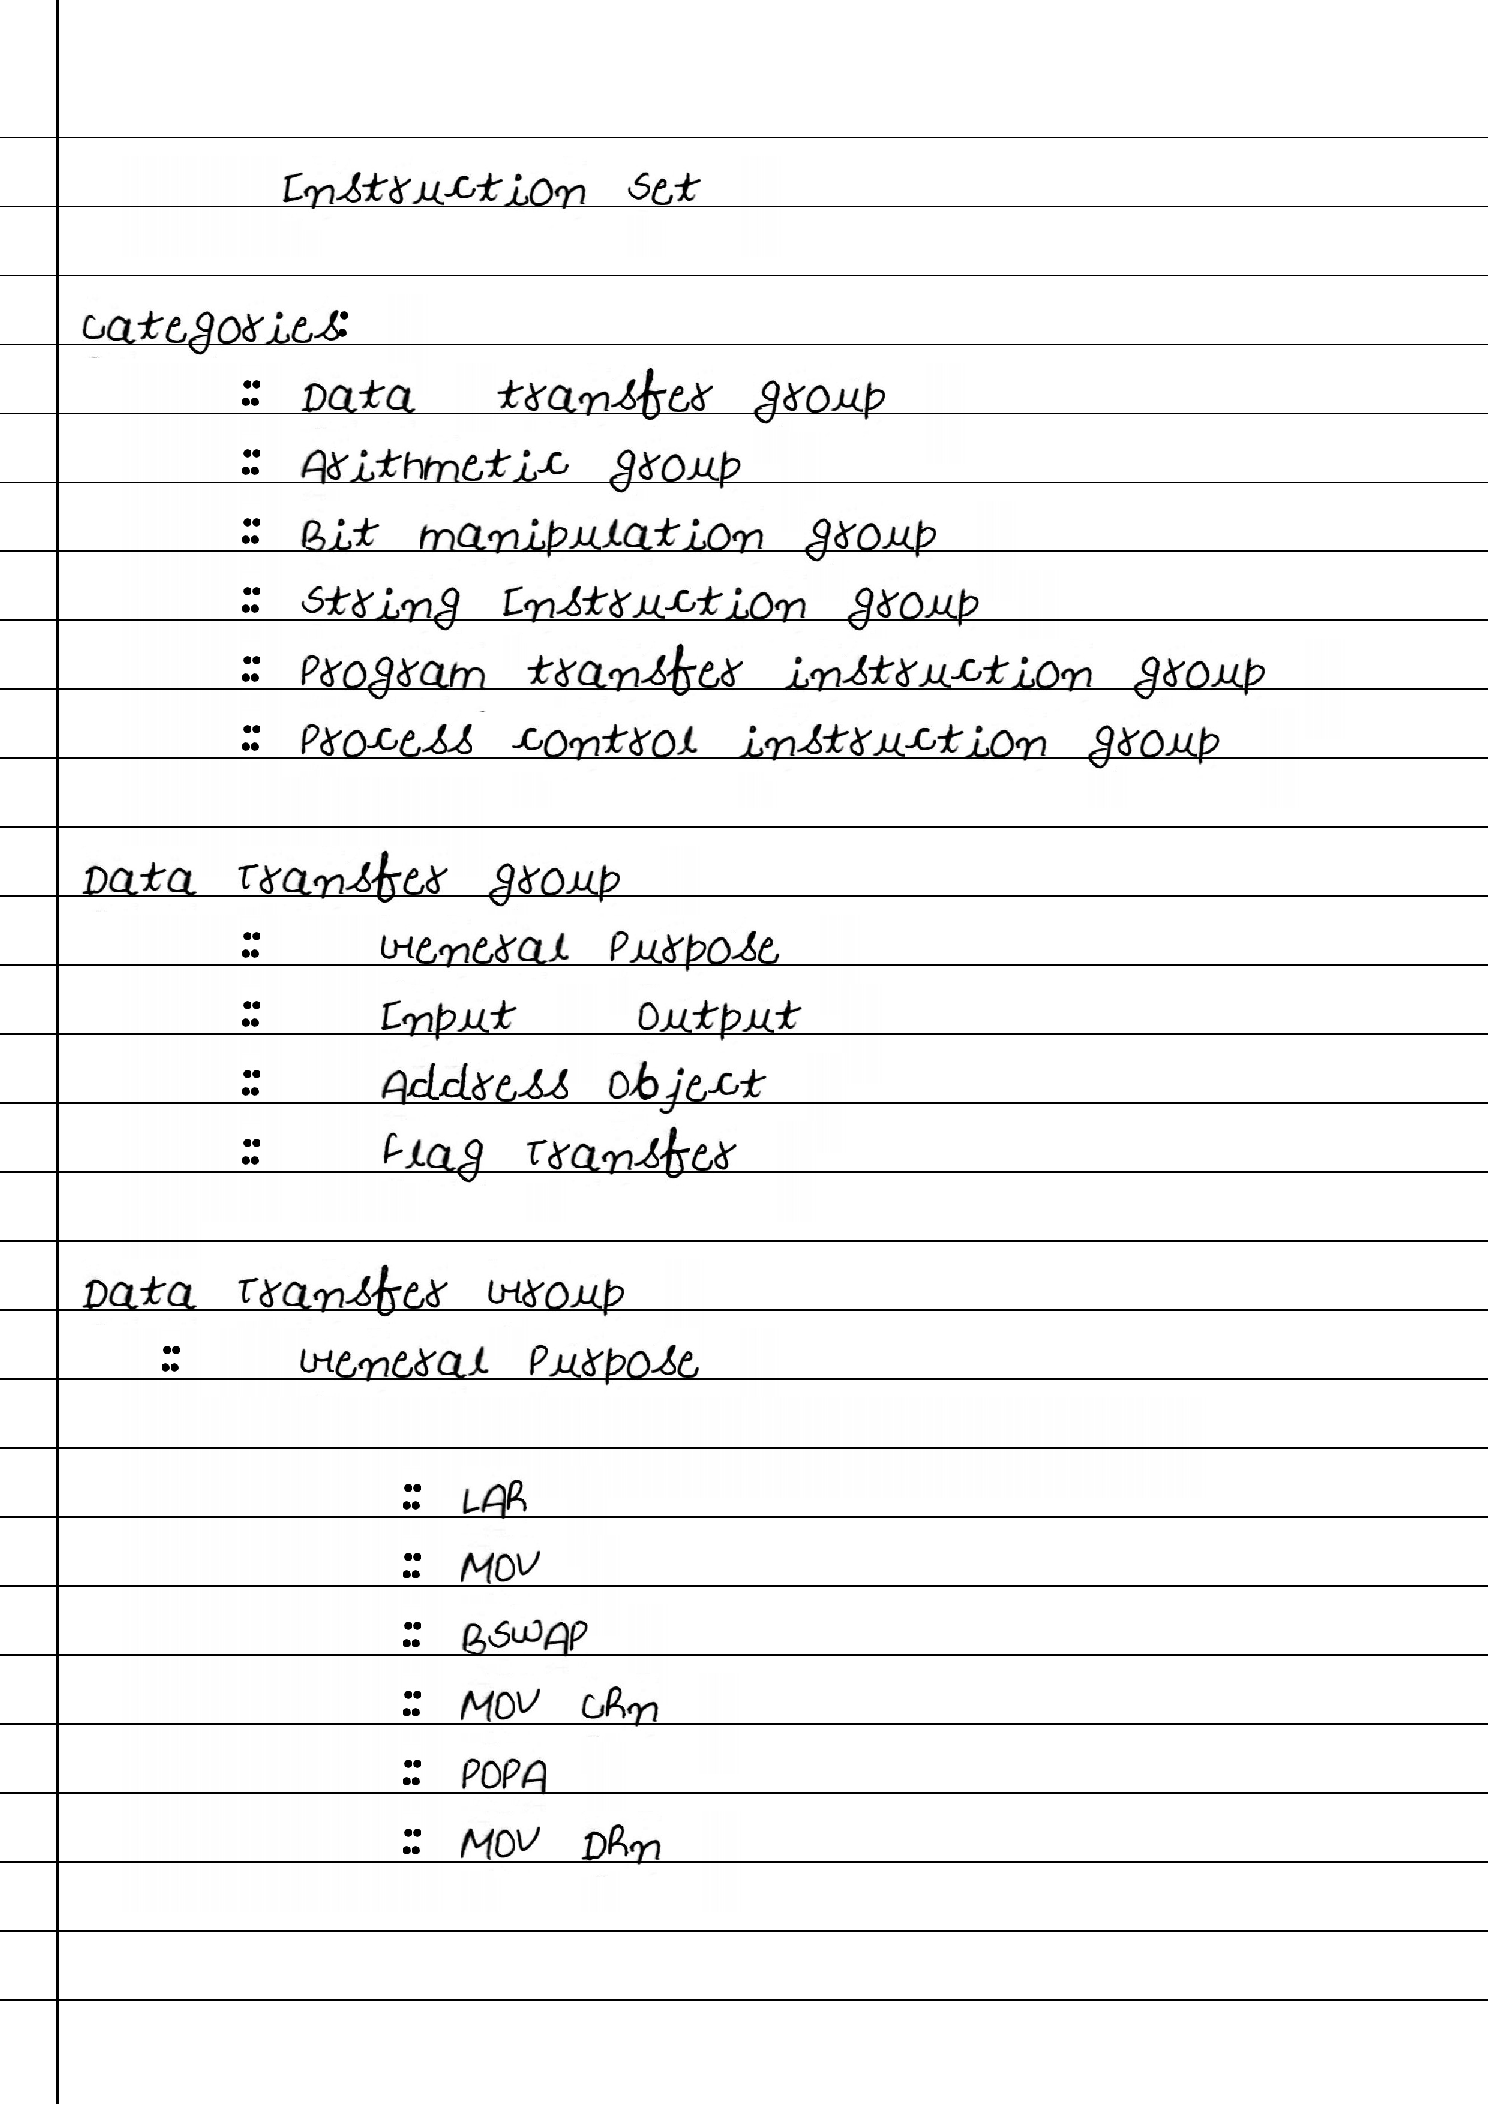 Instruction Set
Categories:
:: Data transfer group
:: Arithmetic group
:: Bit manipulation group
:: String Instruction group
:: Program transfer instruction group
:: Process control instruction group
Data Transfer group
:: General Purpose
:: Input Output
:: Address Object
:: Flag Transfer
Data Transfer Group
:: General Purpose
:: LAR
:: MOV
:: BSWAP
:: MOV CRn
:: POPA
:: MOV DRn